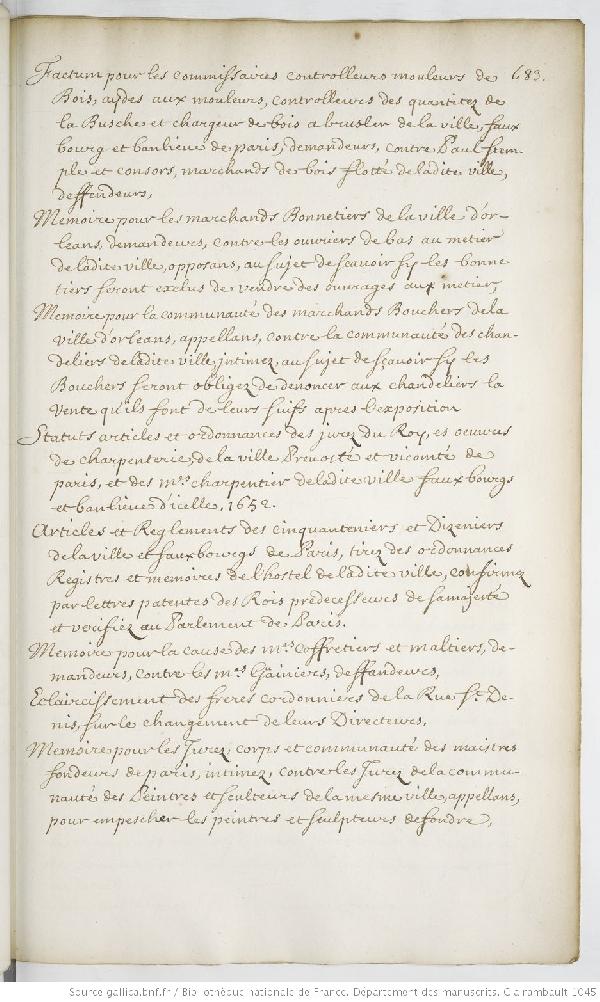 Factum pour les commissaires controlleurs mouleurs de 683.
Bois, aydes aux mouleurs, controlleurs des quantitez de
la Busche et chargeur de bois a brusler de la ville, faux
bourg et banlieue de paris, demandeurs, contre Paul stem-
ple et consors, marchands de bois flotté de ladite ville,
deffendeurs,
Memoire pour les marchands Bonnetiers de la ville d'or-
leans, demandeurs, contre les ouvriers de bas au metier
de ladite ville, opposans, au sujet de sçavoir sy les bonne
tiers seront exclus de vendre des ouvrages aux metier,
Memoire pour la communauté des marchands Bouchers de la
ville d'orleans, appellans, contre la communauté des chan-
deliers de ladite ville, intimez, au sujet de sçavoir sy les
Bouchers seront obligez de denoncer aux chandeliers la
vente qu'ils font de leurs suifs apres l'exposition
Statuts articles et ordonnances des jurez du Roy, es oeuvres
de charpenterie, de la ville Prevosté et vicomté de
paris, et des mes charpentier de ladite ville faux bourgs
et banlieue d'icelle, 1652.
Articles et Reglements des cinquanteniers et Dizeniers
de la ville et fauxbourgs de Paris, tirez des ordonnances
Registres et memoires de l'hostel de ladite ville, confirmez
par lettres patentes des Rois predecesseurs de sa majesté
et verifiez au Parlement de Paris.
Memoire pour la cause des mes Coffretiers et maltiers, de-
mandeurs, contre les mes Gainiers, deffandeurs,
Eclaircissement des freres cordonniers de la Rue St. De-
nis, sur le changement de leurs Directeurs,
Memoire pour les Jurez, corps et communauté des maistres
fondeurs de paris, intimez, contre les Jurez de la commu-
nauté des Peintres et sculteurs de la mesme ville, appellans,
pour empescher les peintres et sculpteurs de fondre,
Source gallica.bnf.fr / Bibliothèque nationale de France. Département des manuscrits. Clairambault 1045